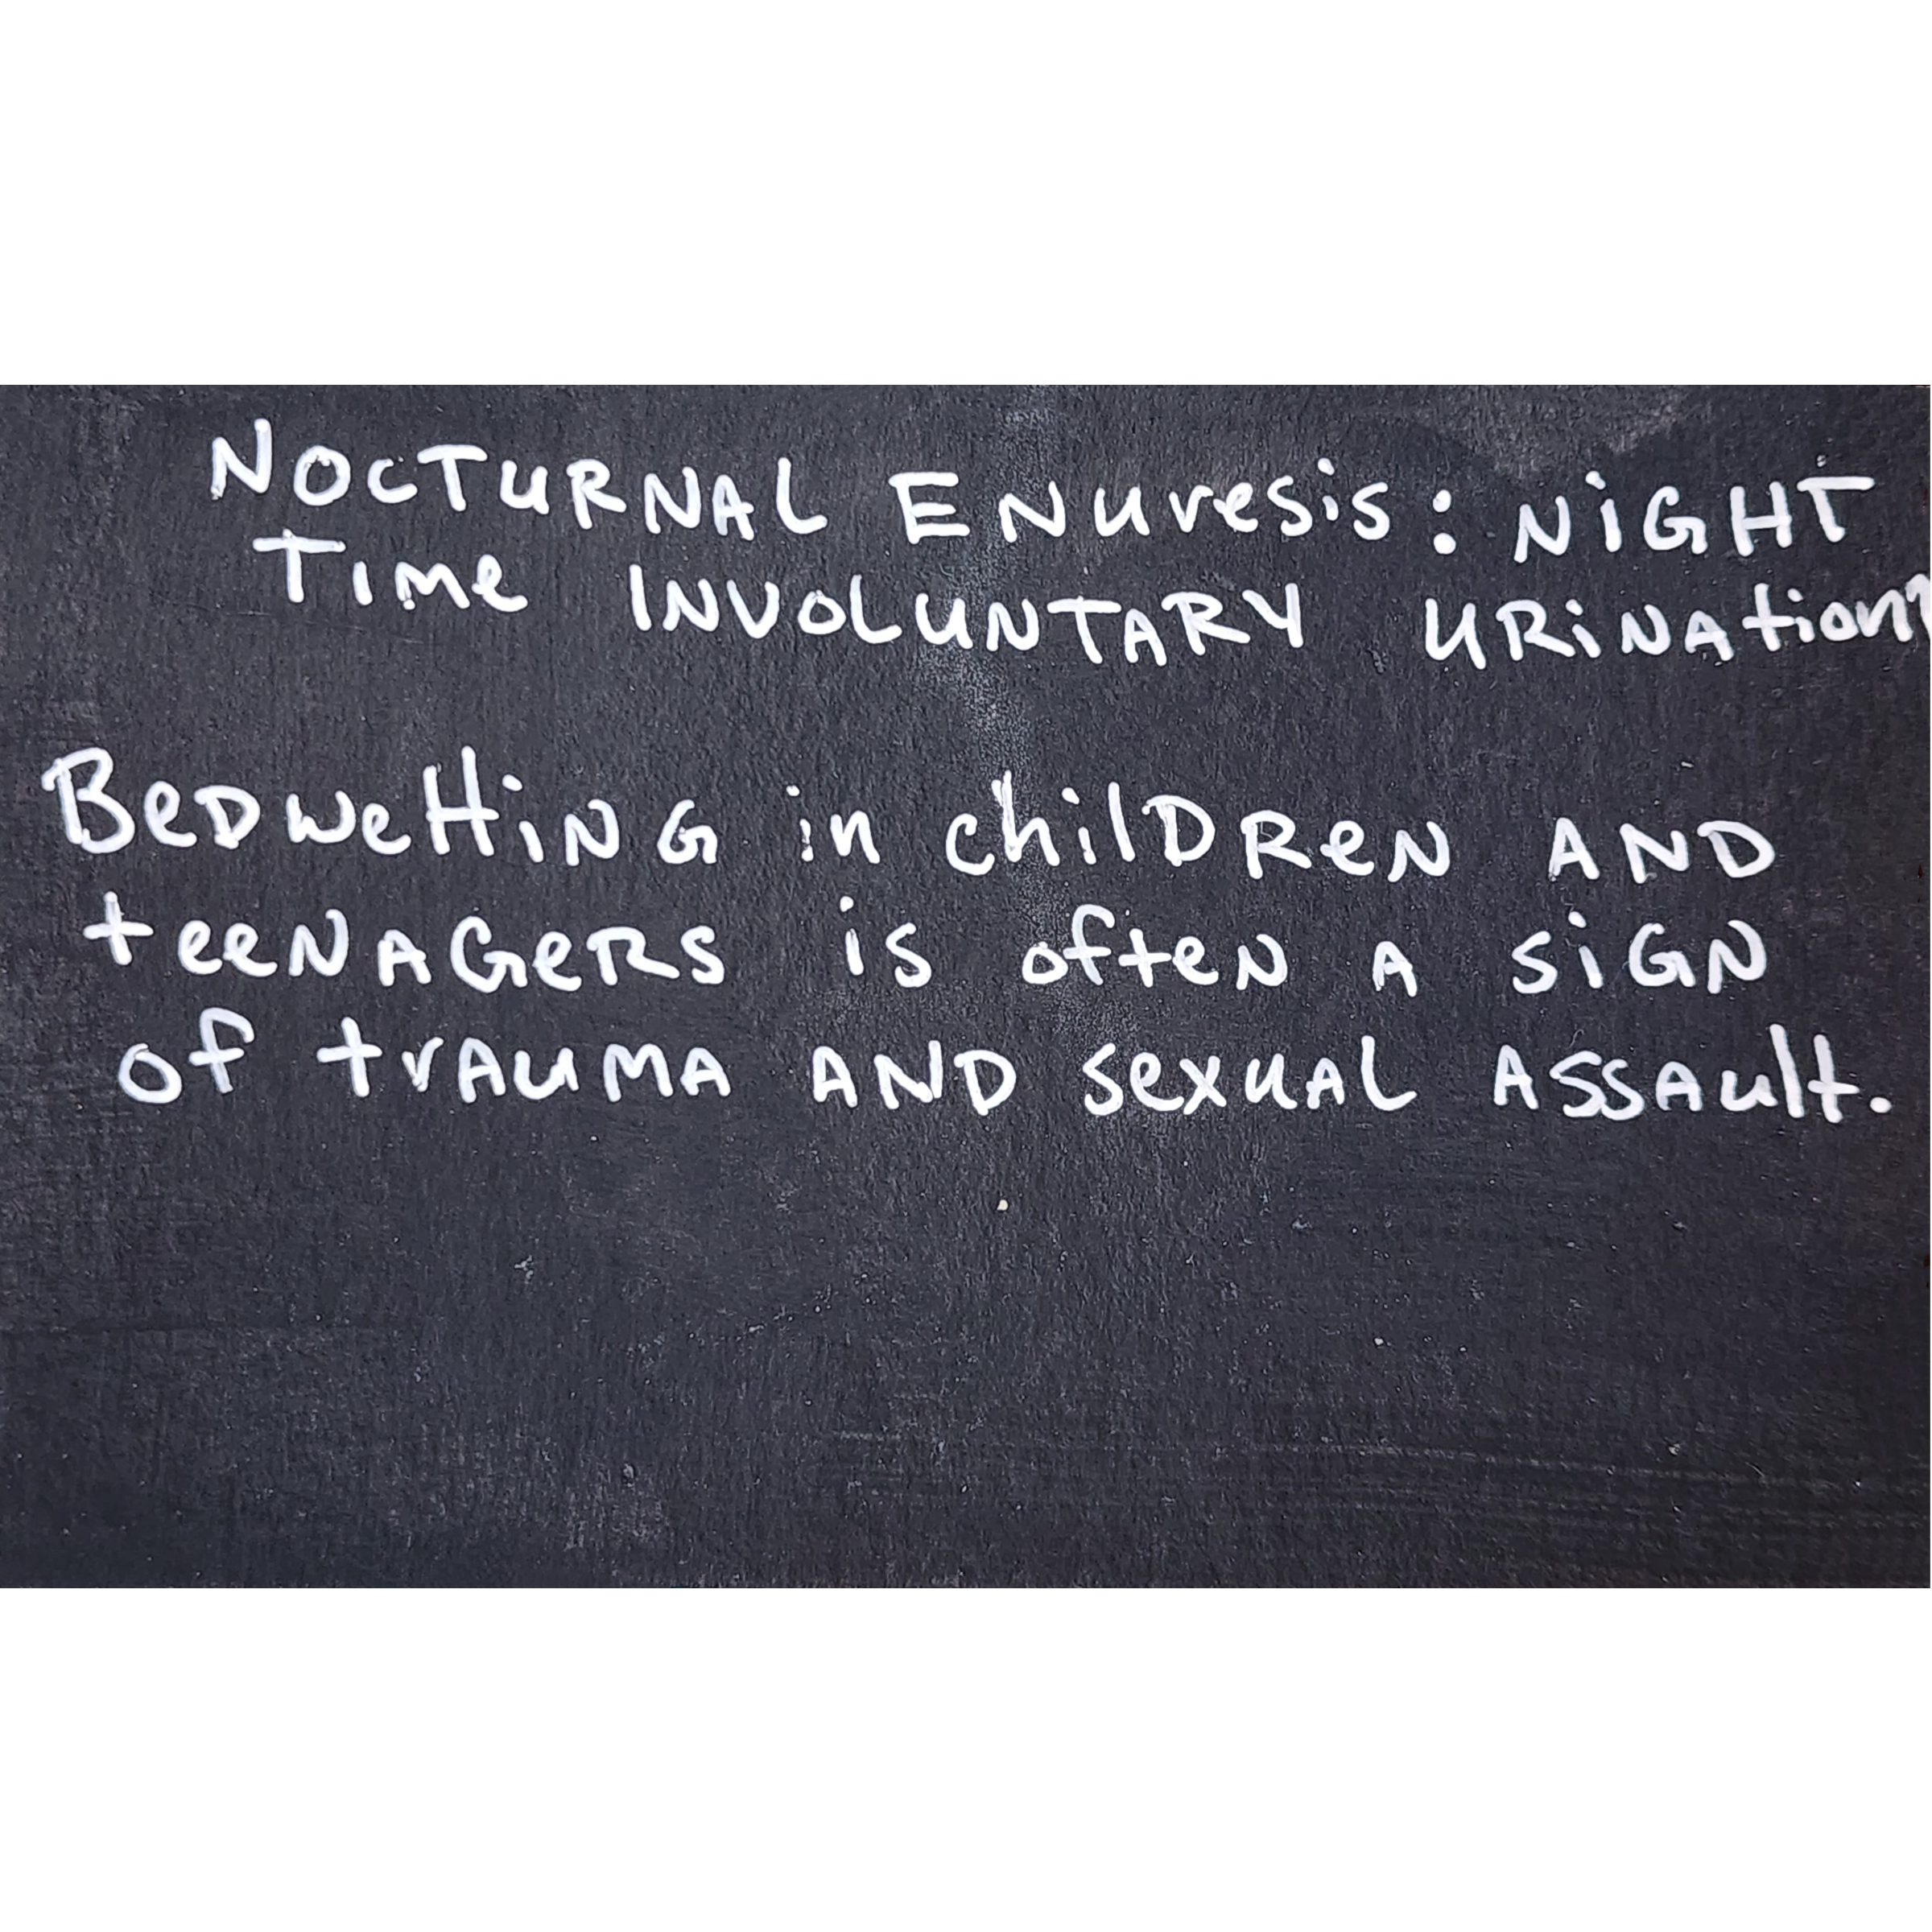 NOCTURNAL ENuresis: NiGHT
TIMe INVOLUNTARY URiNAtion
BeDwettiNG in chilDReN AND
teeNAGeRS iS ofteN A SiGN
of trAuMA AND SexuAL ASSAult.